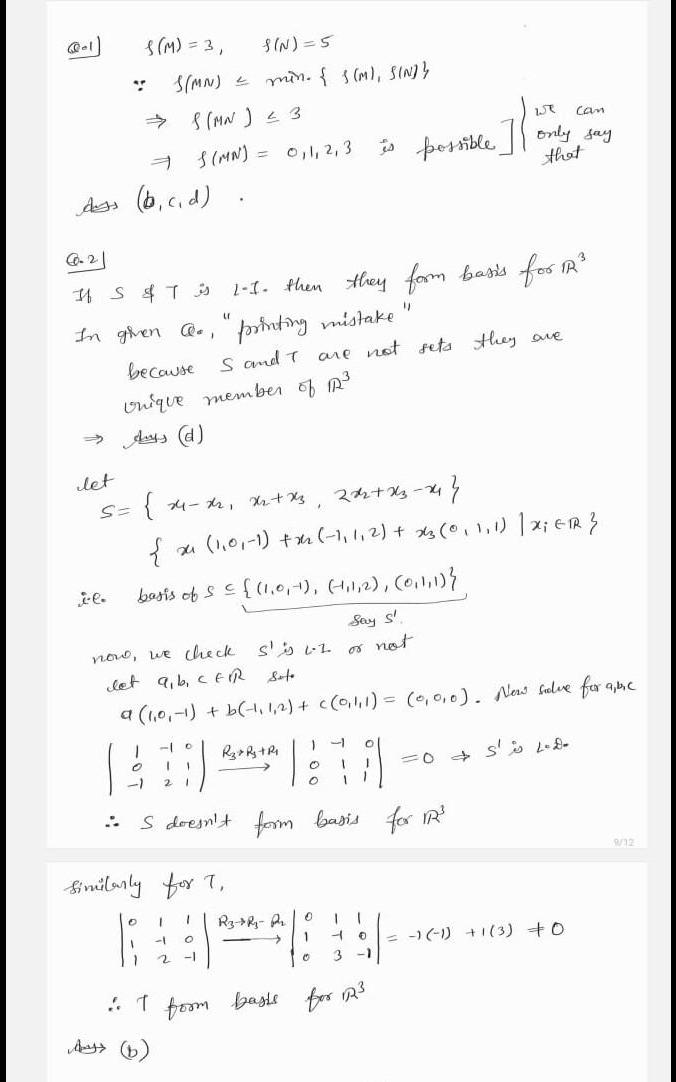 Q.1] ρ(M) = 3, ρ(N) = 5
∵ ρ(MN) ≤ min. { ρ(M), ρ(N)}
⇒ ρ(MN) ≤ 3
⇒ ρ(MN) = 0,1,2,3 is possible ] we can only say that
Ans (b,c,d) .
Q.2]
If S & T is L.I. then they form basis for ℝ³
In given Q., "printing mistake"
because S and T are not sets they are
unique member of ℝ³
⇒ Ans (d)
let
S = { x1-x2, x2+x3, 2x2+x3-x1 }
{ x1 (1,0,-1) + x2 (-1,1,2) + x3 (0,1,1) | xi ∈ ℝ }
i.e. basis of S ⊆ { (1,0,-1), (-1,1,2), (0,1,1) }
Say S'
now, we check S' is L.I or not
let a,b,c ∈ ℝ s.t.
a(1,0,-1) + b(-1,1,2) + c(0,1,1) = (0,0,0). Now solve for a,b,c
| 1 -1 0 | | 1 -1 0 |
| 0 1 1 | R3→R3+R1 | 0 1 1 | = 0 ⇒ S' is L.D.
| -1 2 1 | | 0 1 1 |
∴ S doesn't form basis for ℝ³
9/12
Similarly for T,
| 0 1 1 | R3→R3-R2 | 0 1 1 |
| 1 -1 0 | | 1 -1 0 | = -1(-1) + 1(3) ≠ 0
| 1 2 -1 | | 0 3 -1 |
∴ T form basis for ℝ³
Ans (b)